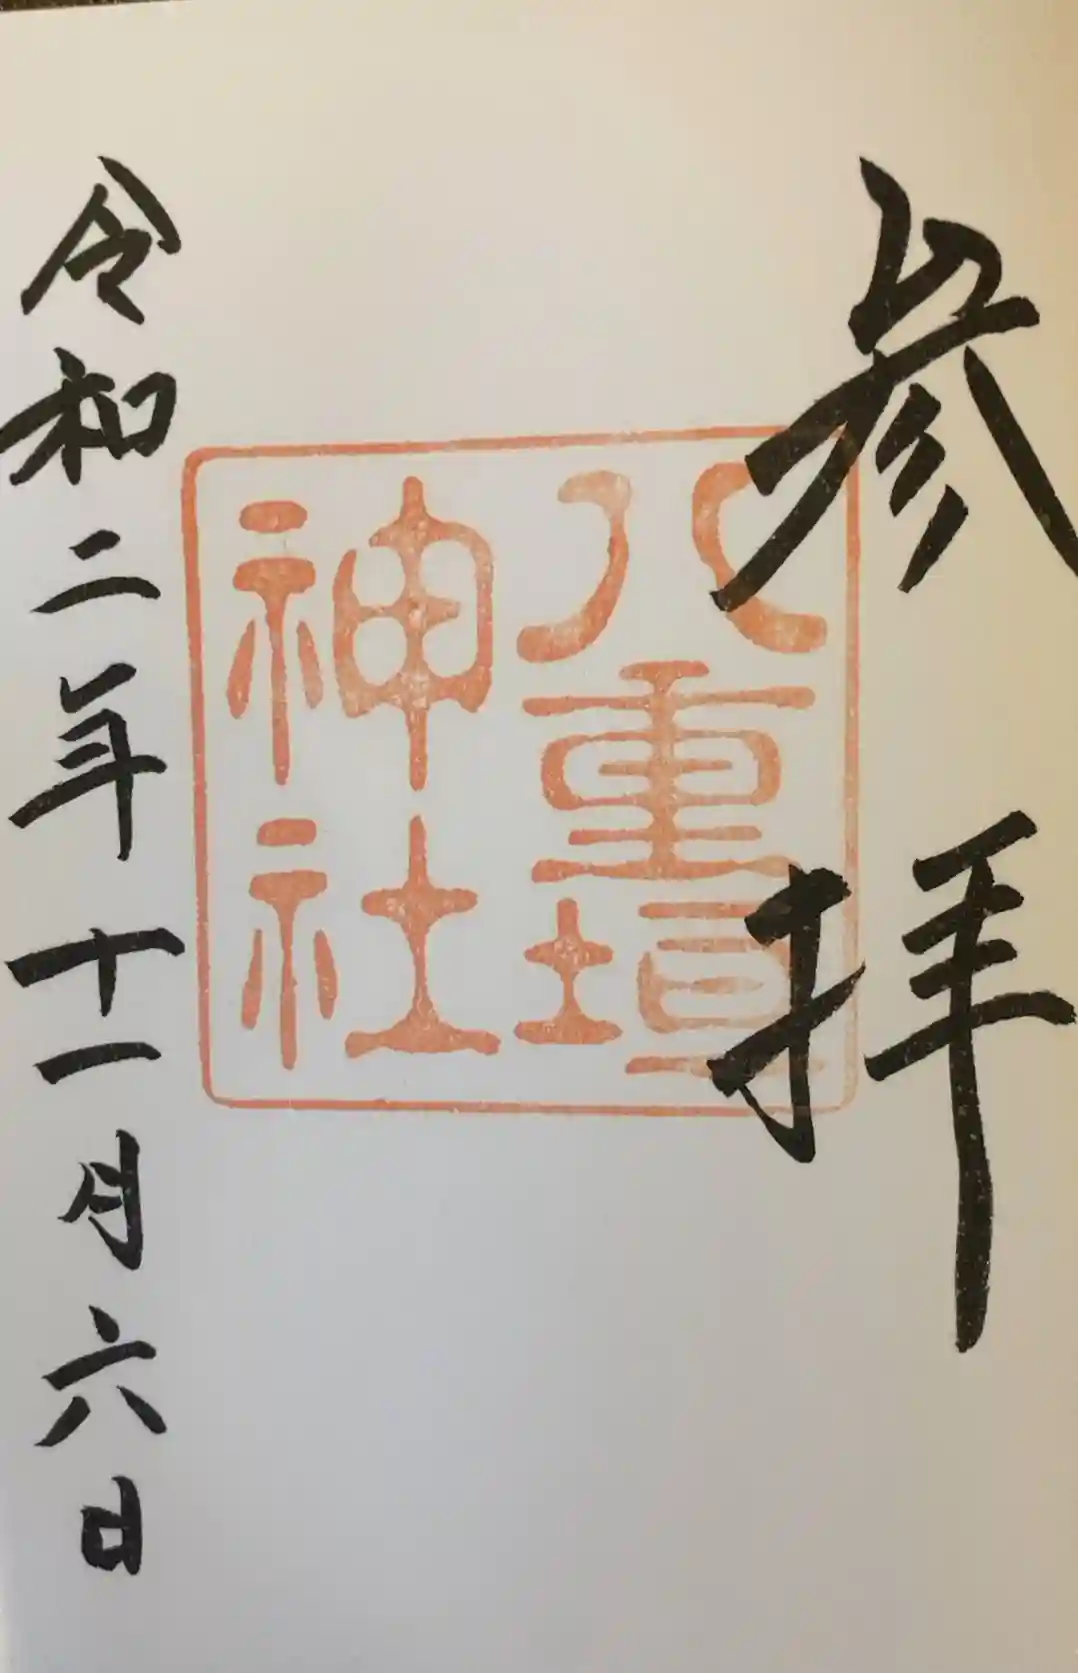 参拝
八重垣
神社
令和二年十一月六日